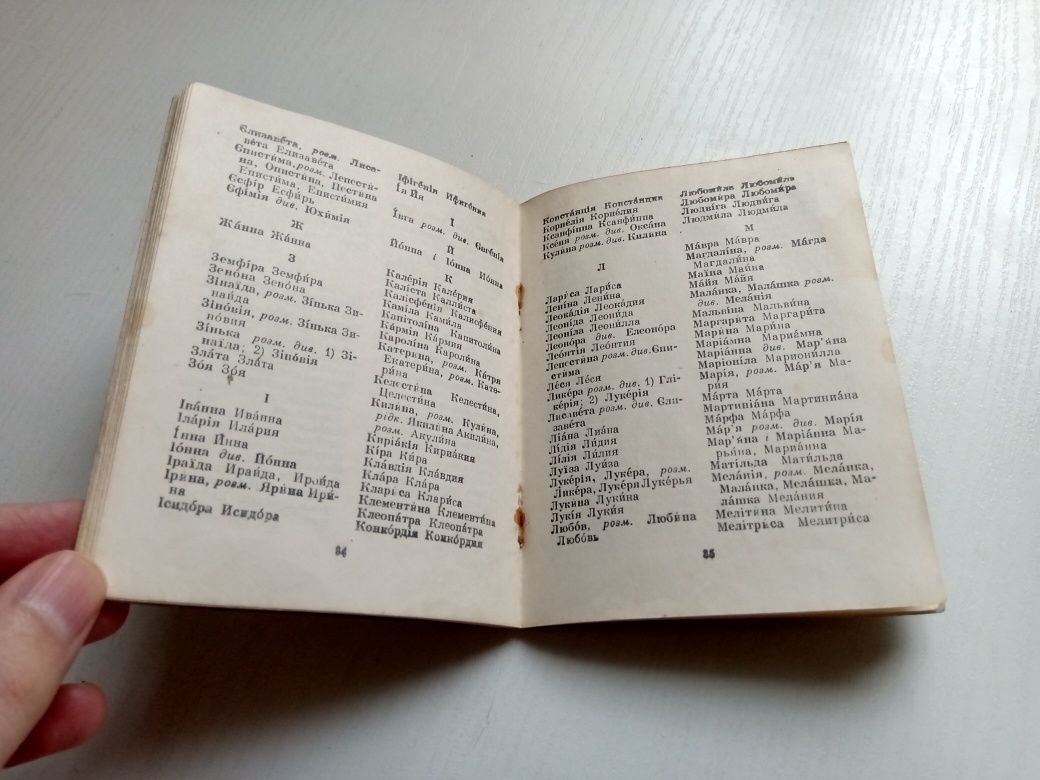 Єлизаве́та, розм. Лиса-
ве́та Елизаве́та
Єписти́ма, розм. Лепести-
на, Опистина, Пестина
Епистима, Епистимия
Єсфі́р Есфирь
Єфі́мія див. Юхи́мія
Ж
Жа́нна Жа́нна
З
Земфі́ра Земфи́ра
Зено́на Зено́на
Зінаї́да, розм. Зі́нька Зи-
наи́да
Зіно́вія, розм. Зі́нька Зи-
но́вия
Зі́нька розм. див. 1) Зі-
наї́да; 2) Зіно́вія
Зла́та Зла́та
Зо́я Зо́я
І
Іва́нна Ива́нна
Іла́рія Ила́рия
І́нна И́нна
Іо́нна див. Йо́нна
Іраї́да Ираи́да, Ирои́да
Іри́на, розм. Яри́на Ири́-
на
Ісидо́ра Исидо́ра
Іфіге́нія Ифиге́ния
І́я И́я
Ї
Ї́вга розм. див. Євге́нія
Й
Йо́нна і Іо́нна Ио́нна
К
Кале́рія Кале́рия
Калі́ста Калли́ста
Калісфе́нія Калисфе́ния
Камі́ла Ками́ла
Капітолі́на Капитоли́на
Ка́рмія Ка́рмия
Кароли́на Кароли́на
Катери́на, розм. Ка́тря
Екатери́на, розм. Кате-
ри́на
Келести́на Келести́на,
Целести́на
Кили́на, розм. Кули́на,
рідк. Якили́на Акили́на,
розм. Акули́на
Киріа́кія Кириа́кия
Кі́ра Ки́ра
Кла́вдія Кла́вдия
Кла́ра Кла́ра
Клари́са Клари́са
Клементи́на Клементи́на
Клеопа́тра Клеопа́тра
Конко́рдія Конко́рдия
84
Конста́нція Конста́нция
Корне́лія Корне́лия
Ксанфі́ппа Ксанфи́ппа
Ксе́ня розм. див. Окса́на
Кули́на розм. див. Кили́на
Л
Лари́са Лари́са
Лені́на Лени́на
Леока́дія Леока́дия
Леоні́да Леони́да
Леоні́ла Леони́лла
Леоно́ра див. Елеоно́ра
Лео́нтія Лео́нтия
Лепести́на розм. див. Єпи-
сти́ма
Ле́ся Ле́ся
Лике́ра розм. див. 1) Глі-
ке́рія; 2) Луке́рія
Лисаве́та розм. див. Єли-
заве́та
Ліа́на Лиа́на
Лі́дія Ли́дия
Лі́лія Ли́лия
Луї́за Луи́за
Луке́рія, Луке́ра, розм.
Лике́ра, Луке́ря Луке́рья
Луки́на Луки́на
Лукі́я Луки́я
Любо́в, розм. Люби́на
Любо́вь
Любоми́ла Любоми́ла
Любоми́ра Любоми́ра
Людві́га Людви́га
Людми́ла Людми́ла
М
Ма́вра Ма́вра
Магдали́на, розм. Ма́гда
Магдали́на
Маї́на Маи́на
Ма́йя Ма́йя
Мала́нка, Мала́шка розм.
див. Мела́нія
Мальві́на Мальви́на
Маргари́та Маргари́та
Мари́на Мари́на
Маріа́мна Мариа́мна
Маріа́нна див. Мар'я́на
Маріоні́ла Марионилла
Марі́я, розм. Ма́р'я Ма-
ри́я
Ма́рта Ма́рта
Мартиніа́на Мартиниа́на
Ма́рфа Ма́рфа
Ма́р'я розм. див. Марі́я
Мар'я́на і Маріа́нна Ма-
рья́на, Мариа́нна
Маті́льда Мати́льда
Мела́нія, розм. Мела́нка,
Мала́нка, Мела́шка, Ма-
ла́шка Мела́ния
Меліти́на Мелити́на
Мелітри́са Мелитри́са
85